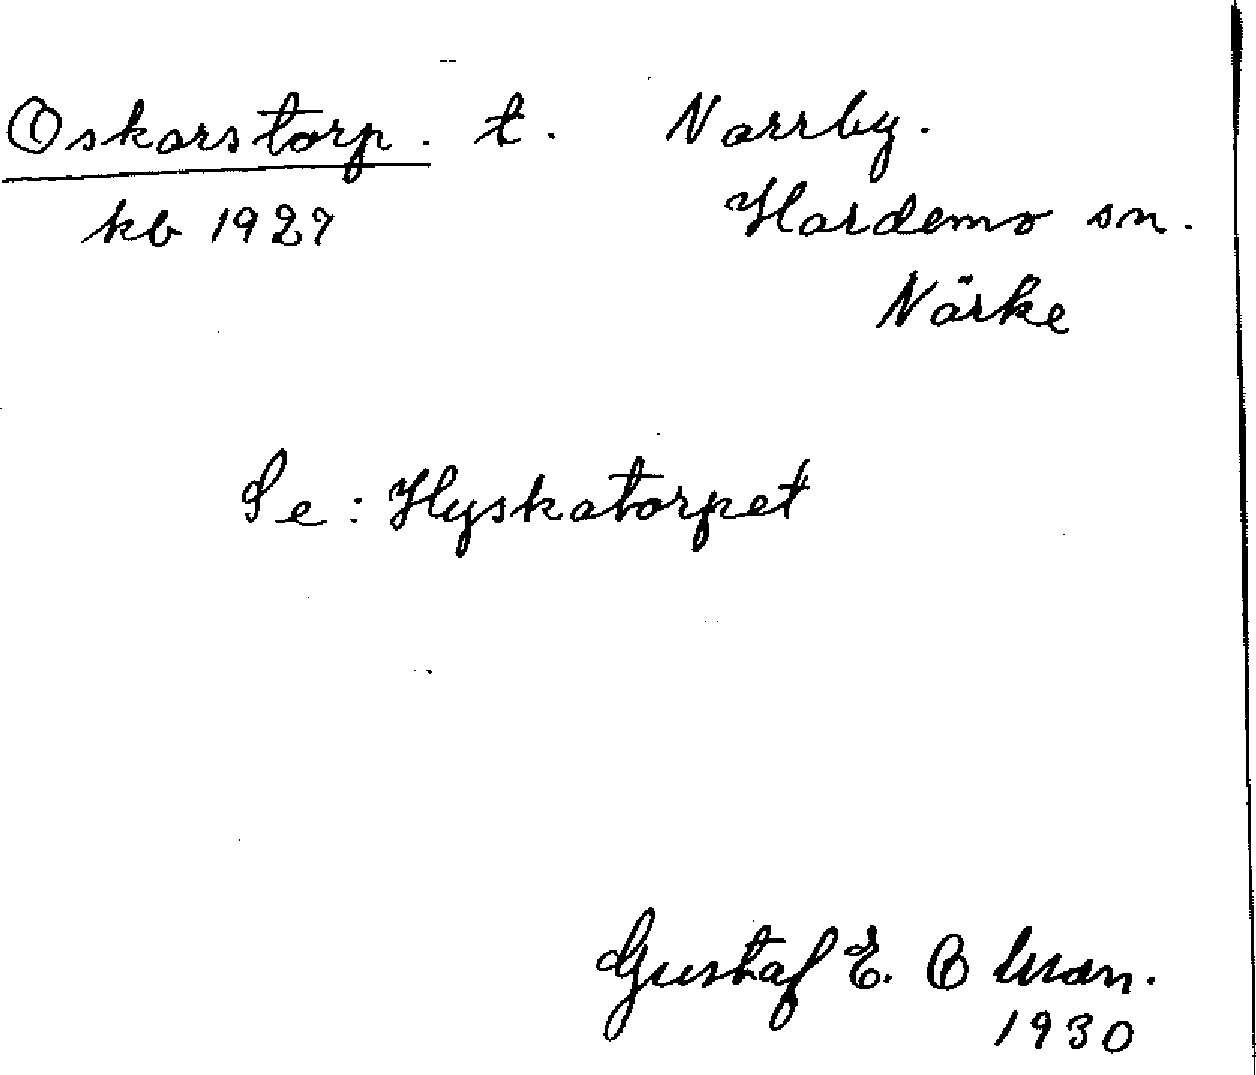 Oskarstorp. t. Norrby.
kb 1927 Hardemo sn.
Närke
Se: Hyskatorpet
Gustaf E.
1930